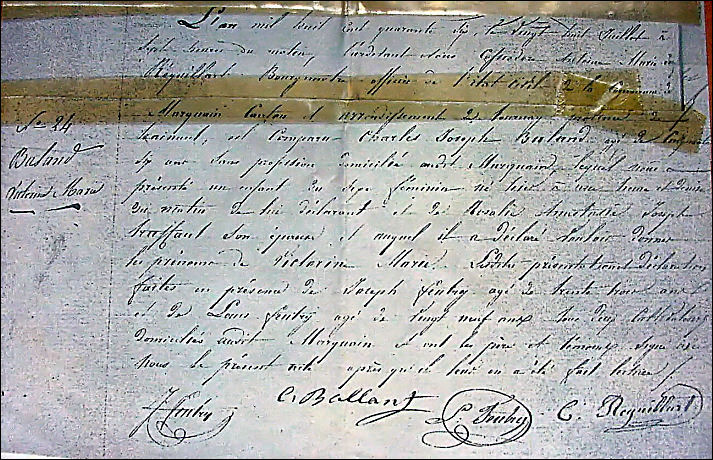 L'an mil huit cent quarante six le vingt huit Juillet à
sept heures du matin, Pardevant nous Marie
Requillart Bourgmestre officier de l'état civil de la commune de
Marquain Canton et arrondissement de tournay province de
hainaut, est Comparu Charles Joseph agé de
six ans Sans profession domicilié audit Marquain, lequel nous a
présenté un enfant du Sexe féminin né hier à une heure et demie
du matin de lui déclarant et de Rosalie Joseph
Son épouse et auquel il a déclaré Vouloir donner
les prénoms de Victorin Marie. Lesdites présentation et déclaration
faites en présence de Joseph fentry agé de trente trois ans
et de Louis fentry agé de Vingt neuf ans tous deux
domiciliés audit Marquain et ont les père et témoins Signé avec
Nous le présent acte après qu'il leur en a été fait lecture /.
N° 24
Marie
J fentry
L. Fentry
C. Requillart